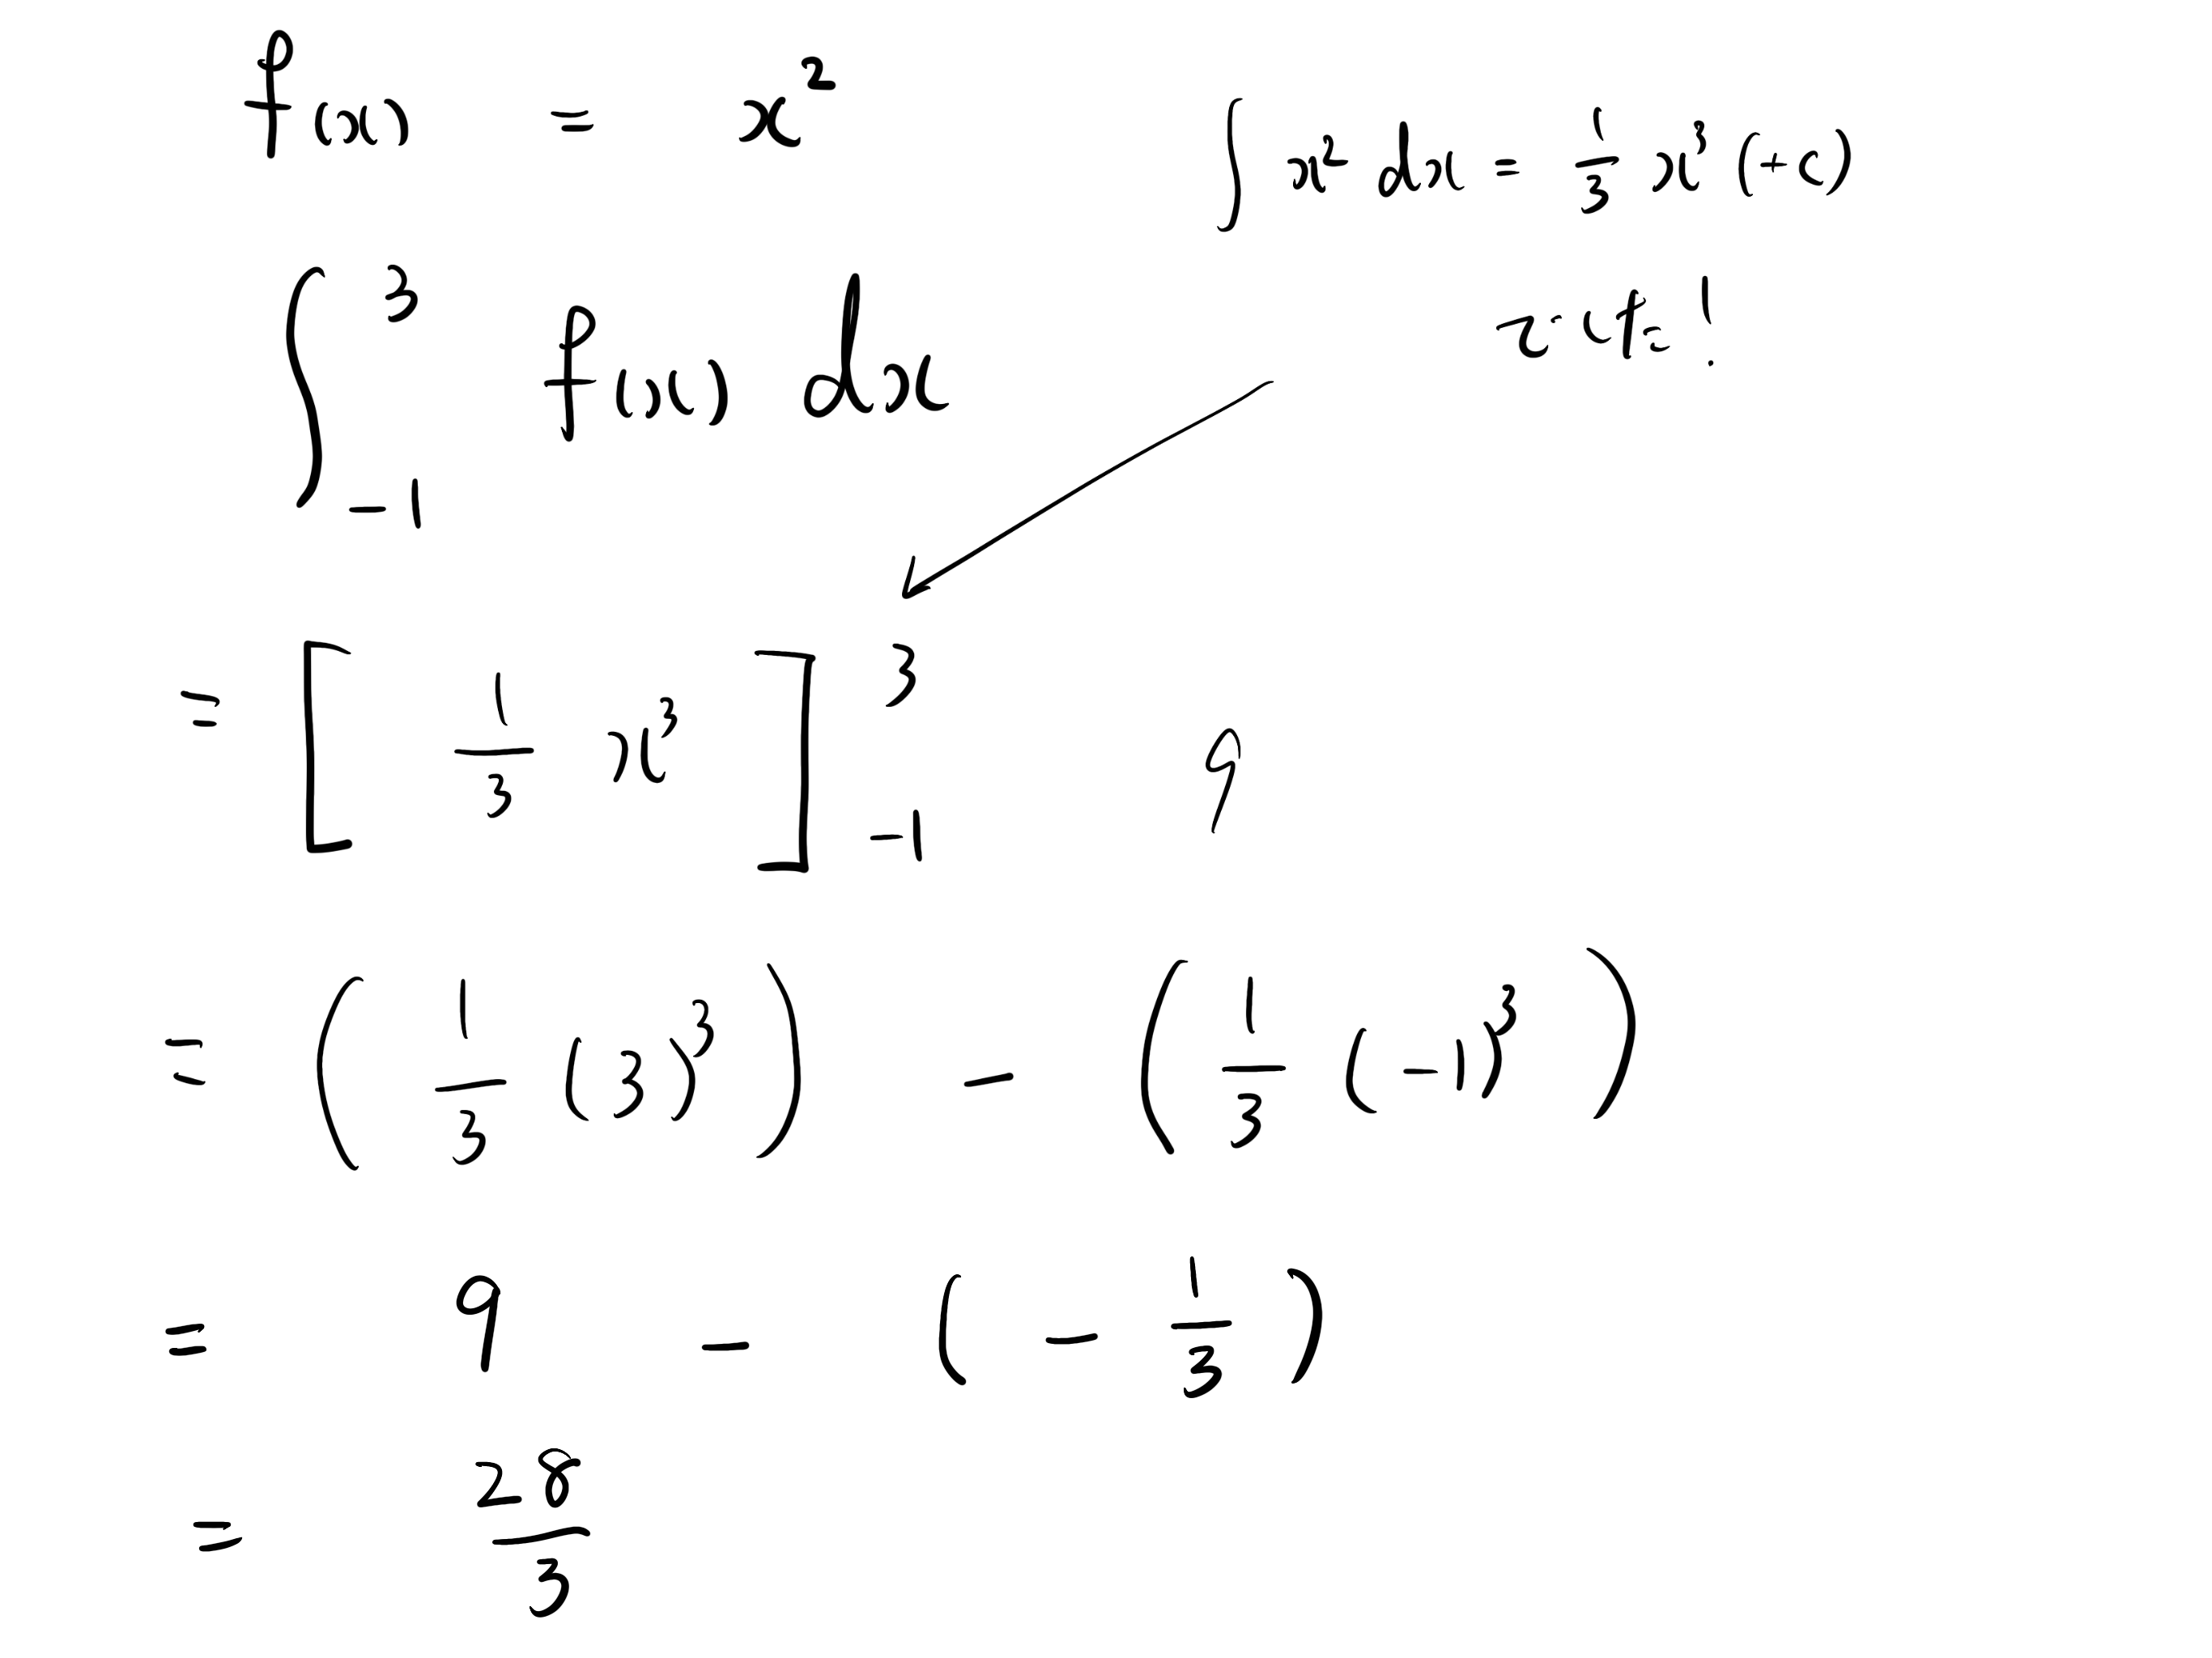 f(x) = x²
∫ x² dx = 1/3 x³ (+c)
なので!
∫₋₁³ f(x) dx
= [ 1/3 x³ ]₋₁³
9
= ( 1/3 (3)³ ) − ( 1/3 (−1)³ )
= 9 − ( − 1/3 )
= 28/3